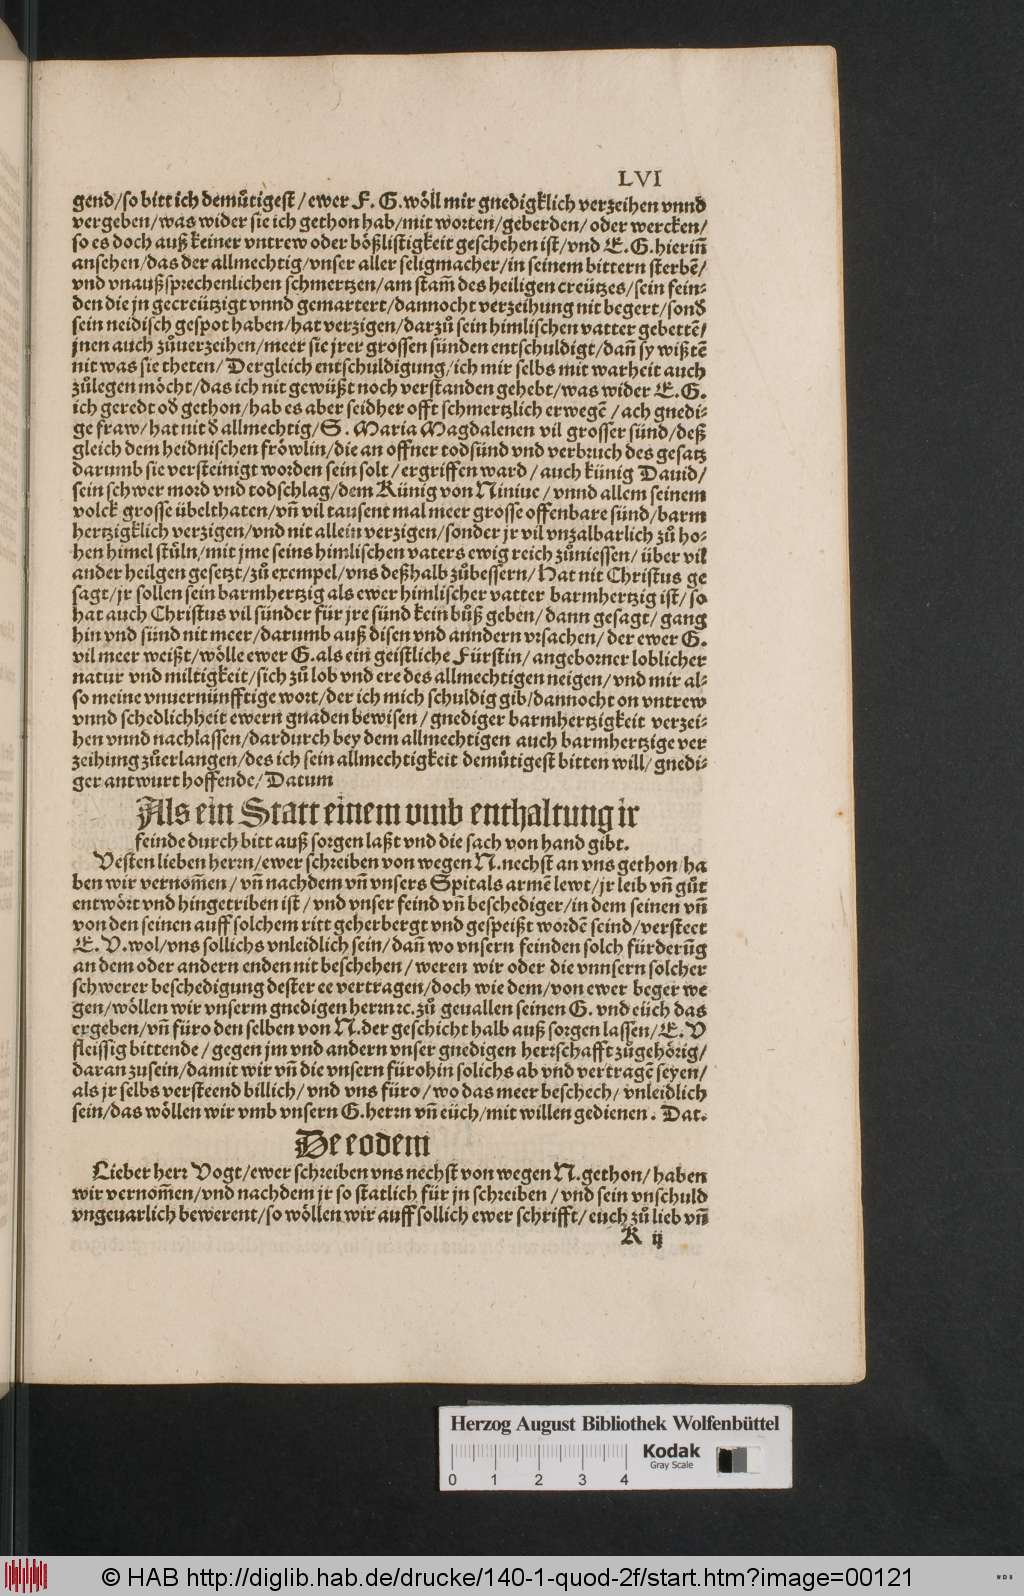 LVI
gend/so bitt ich demuͤtigest/ewer F. G. woͤll mir gnedigklich verzeihen vnnd
vergeben/was wider sie ich gethon hab/mit worten/geberden/oder wercken/
so es doch auß keiner vntrew oder boͤßlistigkeit geschehen ist/vnd E. G. hierin̄
ansehen/das der allmechtig/vnser aller seligmacher/in seinem bittern sterbē/
vnd vnaußsprechenlichen schmertzen/am stam̄ des heiligen creützes/sein fein⸗
den die jn gecreützigt vnnd gemartert/dannocht verzeihung nit begert/sond
sein neidisch gespot haben/hat verzigen/darzů sein himlischen vatter gebettē/
jnen auch zůuerzeihen/meer sie jrer grossen sünden entschuldigt/dan̄ sy wißtē
nit was sie theten/Dergleich entschuldigung/ich mir selbs mit warheit auch
zůlegen moͤcht/das ich nit gewüßt noch verstanden gehebt/was wider E. G.
ich geredt od gethon/hab es aber seidher offt schmertzlich erwegē/ach gnedi⸗
ge fraw/hat nit d allmechtig/S. Maria Magdalenen vil grosser sünd/deß
gleich dem heidnischen froͤwlin/die an offner todsünd vnd verbruch des gesatz
darumb sie versteinigt worden sein solt/ergriffen ward/auch künig Dauid/
sein schwer mord vnd todschlag/dem Künig von Niniue/vnnd allem seinem
volck grosse übelthaten/vn̄ vil tausent mal meer grosse offenbare sünd/barm
hertzigklich verzigen/vnd nit allein verzigen/sonder jr vil vnzalbarlich zů ho⸗
hen himel stůln/mit jme seins himlischen vaters ewig reich zůniessen/über vil
ander heilgen gesetzt/zů exempel/vns deßhalb zůbessern/Hat nit Christus ge
sagt/jr sollen sein barmhertzig als ewer himlischer vatter barmhertzig ist/so
hat auch Christus vil sünder für jre sünd kein bůß geben/dann gesagt/gang
hin vnd sünd nit meer/darumb auß disen vnd anndern vrsachen/der ewer G.
vil meer weißt/woͤlle ewer G. als ein geistliche Fürstin/angeborner loblicher
natur vnd miltigkeit/sich zů lob vnd ere des allmechtigen neigen/vnd mir al⸗
so meine vnuernünfftige wort/der ich mich schuldig gib/dannocht on vntrew
vnnd schedlichheit ewern gnaden bewisen/gnediger barmhertzigkeit verzei⸗
hen vnnd nachlassen/dardurch bey dem allmechtigen auch barmhertzige ver
zeihung zůerlangen/des ich sein allmechtigkeit demuͤtigest bitten will/gnedi⸗
ger antwurt hoffende/Datum
Als ein Statt einem vmb enthaltung ir
feinde durch bitt auß sorgen laßt vnd die sach von hand gibt.
Vesten lieben herrn/ewer schreiben von wegen N. nechst an vns gethon/ha
ben wir vernom̄en/vn̄ nachdem vn̄ vnsers Spitals armē lewt/jr leib vn̄ gůt
entwoͤrt vnd hingetriben ist/vnd vnser feind vn̄ beschediger/in dem seinen vn̄
von den seinen auff solchem ritt geherbergt vnd gespeißt wordē seind/versteet
E. V. wol/vns sollichs vnleidlich sein/dan̄ wo vnsern feinden solch fürderūg
an dem oder andern enden nit beschehen/weren wir oder die vnnsern solcher
schwerer beschedigung dester ee vertragen/doch wie dem/von ewer beger we
gen/woͤllen wir vnserm gnedigen herrn ꝛc. zů geuallen seinen G. vnd eüch das
ergeben/vn̄ füro den selben von N. der geschicht halb auß sorgen lassen/E. V
fleissig bittende/gegen jm vnd andern vnser gnedigen herrschafft zůgehoͤrig/
daran zusein/damit wir vn̄ die vnsern fürohin solichs ab vnd vertragē seyen/
als jr selbs versteend billich/vnd vns füro/wo das meer beschech/vnleidlich
sein/das woͤllen wir vmb vnsern G. herrn vn̄ eüch/mit willen gedienen. Dat.
De eodem
Lieber herr Vogt/ewer schreiben vns nechst von wegen N. gethon/haben
wir vernom̄en/vnd nachdem jr so statlich für jn schreiben/vnd sein vnschuld
vngeuarlich bewerent/so woͤllen wir auff sollich ewer schrifft/euch zů lieb vn̄
K ij
Herzog August Bibliothek Wolfenbüttel
0 1 2 3 4
Kodak
Gray Scale
© HAB http://diglib.hab.de/drucke/140-1-quod-2f/start.htm?image=00121